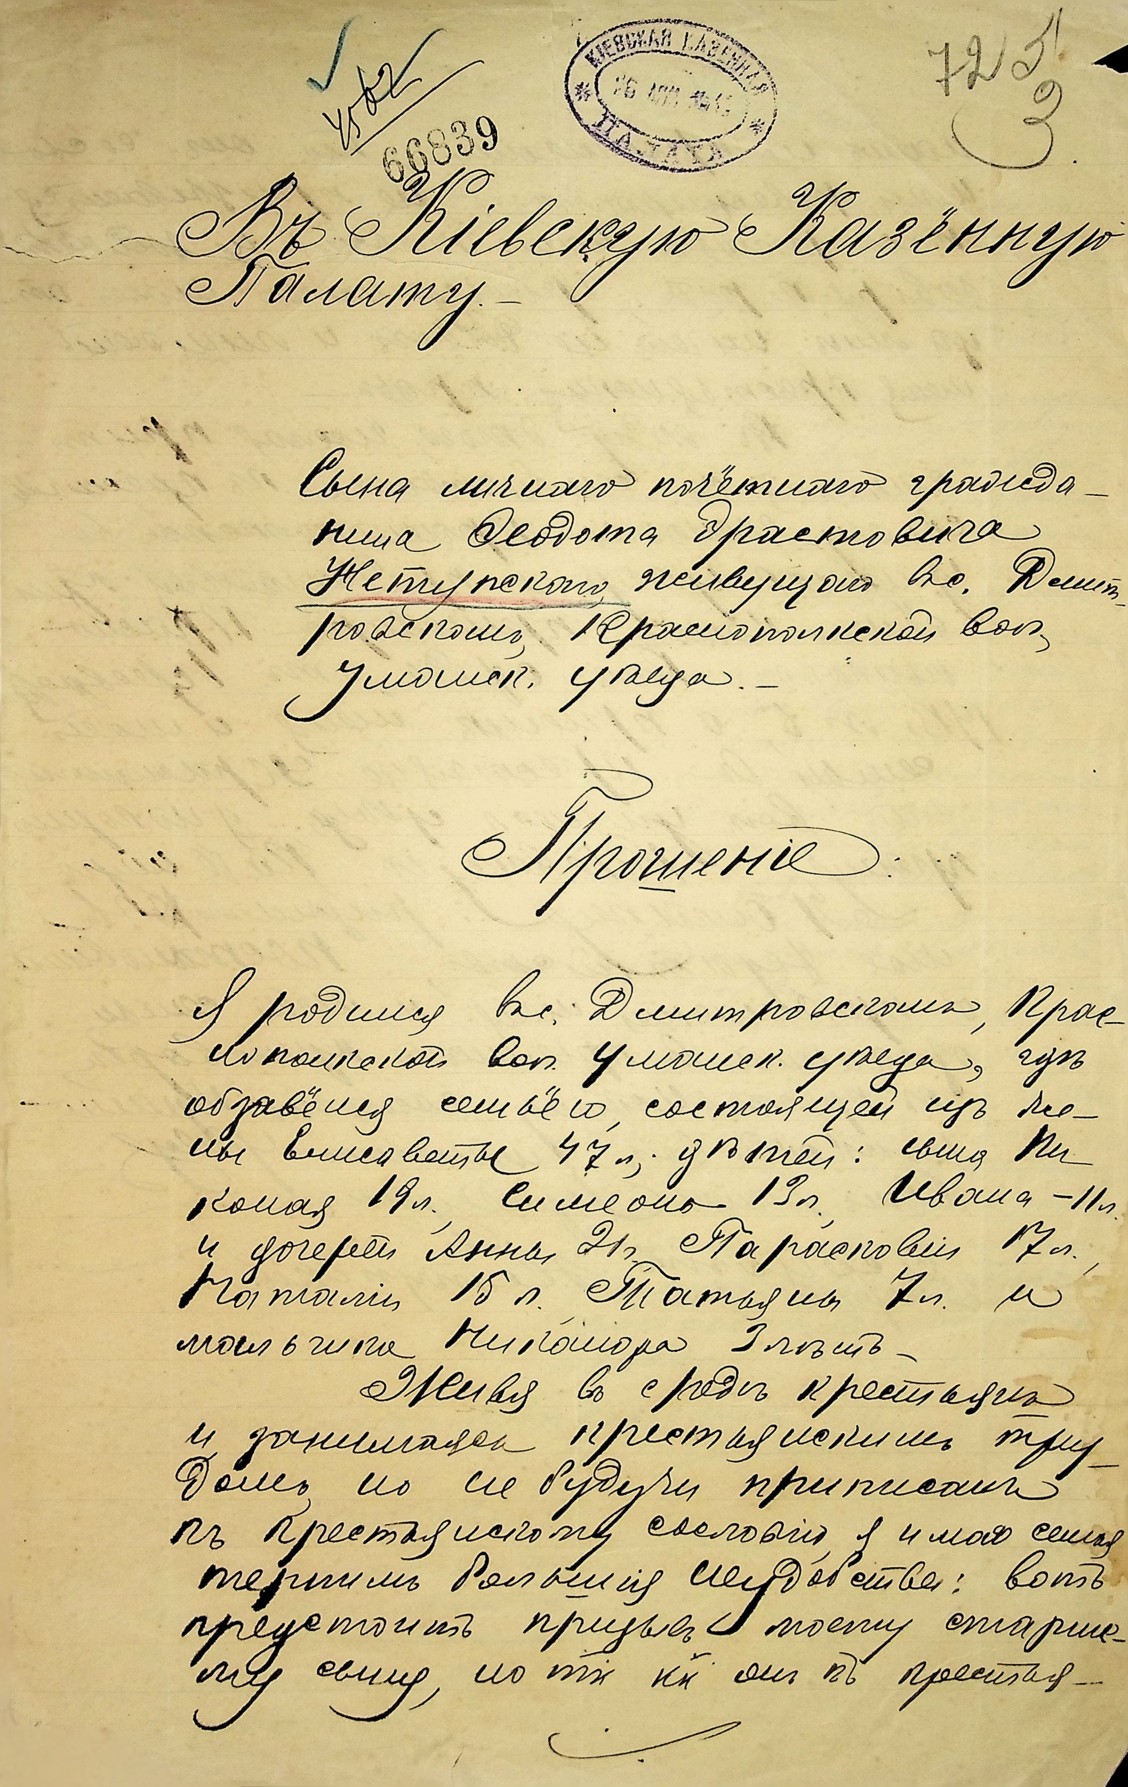 725
3
66839
КІЕВСКАЯ КАЗЕННАЯ
ПАЛАТА
Въ Кіевскую Казённую
Палату. —
Сына личнаго почётнаго гражда-
нина Ѳеодота Эрастовича
Нетупскаго, живущаго въ с. Дмит-
ровскомъ, Краснополкской вол.,
Уманск. уѣзда. —
Прошеніе
Я родился въ с. Дмитровскомъ, Крас-
нополкской вол. Уманск. уѣзда, гдѣ
обзавёлся семьёю, состоящей изъ же-
ны Елисаветы 47 л., дѣтей: сына Ни-
колая 19 л., Симеона 13 л., Ивана — 11 л.
и дочерей Анны 21 л., Парасковіи 17 л.,
Наталіи 15 л. Татьяны 7 л. и
мальчика Никанора 3 лѣтъ —
Живя въ средѣ крестьянъ
и занимаясь крестьянскимъ тру-
домъ, но не будучи приписанъ
къ крестьянскому сословію, я и моя семья
терпимъ большія неудобства: вотъ
предстоитъ призывъ моему старше-
му сыну, но тк кк онъ къ крестья-